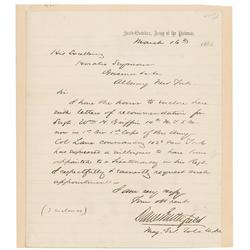 Head-Quarters, Army of the Potomac,
March 16th 1863
His Excellency
Horatio Seymour
Governor &c
Albany New York
Sir
I have the honor to enclose here
with letters of recommendation for
Sergt Wm H. Griffin 10th N.Y.
now in 1st Div 1st Corps of this Army
Col Lane commanding 102d N.Y.
represents a willingness to have him
appointed to a Lieutenancy in his Regt
I respectfully & earnestly request such
appointment
I am very respy
Your obt servt
(3 enclosures)
Daniel Butterfield
Maj. Gen.